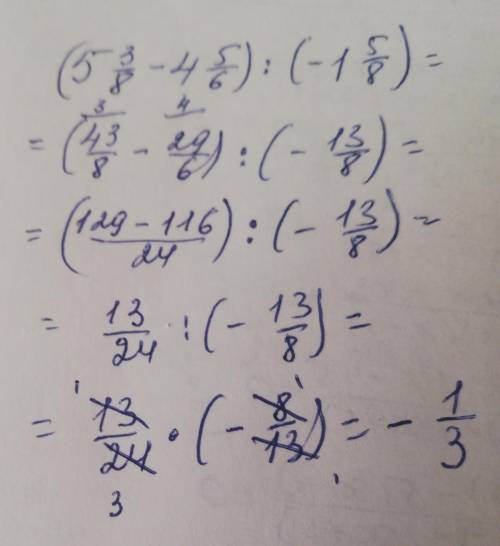 (5 3/8 - 4 5/6) : (-1 5/8) =
3 4
= (43/8 - 29/6) : (- 13/8) =
= (129 - 116 / 24) : (- 13/8) =
= 13/24 : (- 13/8) =
1 1
= 13/24 · (- 8/13) = - 1/3
3 1